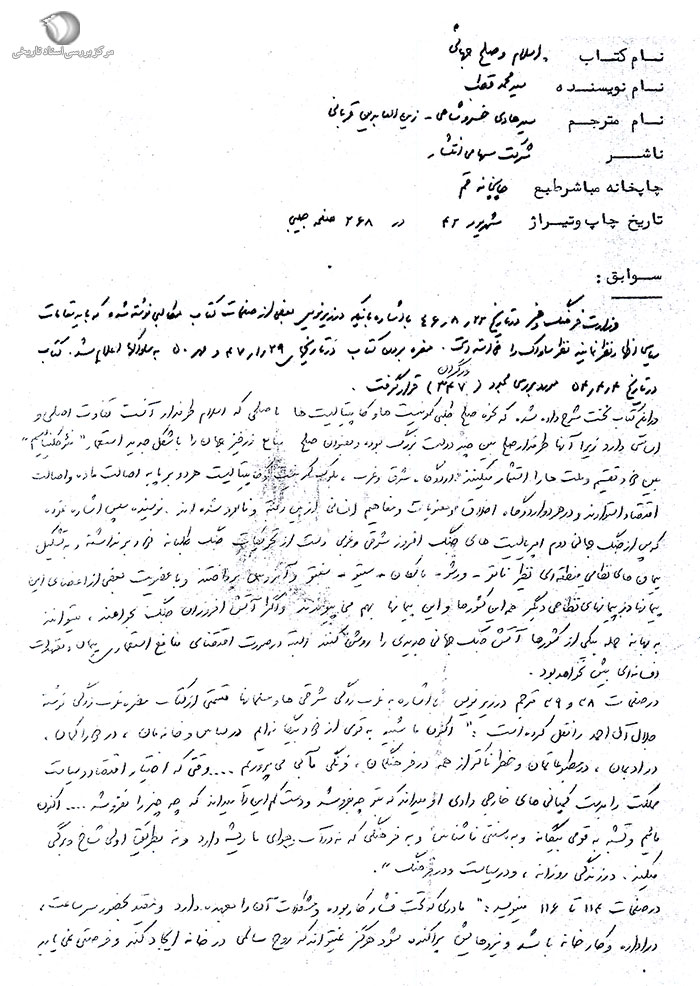 مرکز بررسی اسناد تاریخی
نام کتاب اسلام و صلح جهانی
نام نویسنده سید محمد قطب
نام مترجم سید هادی خسروشاهی - زین العابدین قربانی
ناشر شرکت سهامی انتشار
چاپخانه مباشر طبع چاپخانه قم
تاریخ چاپ و تیراژ شهریور ۴۲ در ۲۶۸ صفحه جیبی
سوابق :
وزارت فرهنگ و هنر در تاریخ ۲۲ر۸ر۴۶ با اشاره باینکه در زیرنویس بعضی از صفحات کتاب مطالبی نوشته شده که باید مقامات
سیاسی اظهار نظر نمایند نظر ساواک را خواسته است. مضره بودن کتاب در تاریخهای ۲۹ر۱ر۴۷ و ۵۰ به ساواکها اعلام شد. کتاب
در تاریخ ۴ر۴ر۵۴ مورد بررسی مجدد (۳۴۷) قرار گرفت.
در این کتاب نخست شرح داده شده که نحوه صلح طلبی کمونیست ها و کاپیتالیست ها با صلحی که اسلام طرفدار آنست تفاوت اصلی و
اساسی دارد زیرا آنها طرفدار صلح بین چند دولت بزرگ بوده و بعنوان صلح منابع زرخیز جهان را باشکل جدید استعمار
بین خود تقسیم و ملت ها را استثمار میکنند. اردوگاه شرق و غرب، بلوک کمونیست و کاپیتالیست هر دو بر پایه اصالت ماده و اصالت
اقتصاد استوارند و در هر دو اردوگاه، اخلاق و معنویات و مفاهیم انسانی از بین رفته و نابود شده اند. نویسنده سپس اشاره نموده
که پس از جنگ جهانی دوم امپریالیست های جنگ افروز شرقی و غربی دست از تحریکات جنگ طلبانه خود برنداشته و به تشکیل
پیمان های نظامی منطقه ای نظیر ناتو - ورشو - بالکان - سیتو - سنتو و آنزوس پرداختند و با عضویت بعضی از اعضای این
پیمانها در پیمانهای نظامی دیگر همه این کشورها و این پیمانها بهم می پیوندند و اگر آتش افروزان جنگ بخواهند، میتوانند
به بهانه حمله بیکی از کشورها آتش جنگ جهانی جدیدی را روشن کنند البته در صورت اقتضای منافع استعماری پیمان و تعهدات
افسانه ای بیش نخواهد بود.
در صفحات ۲۸ و ۲۹ مترجم در زیرنویس با اشاره به غرب زدگی شرقی ها و مسلمانها قسمتی از کتاب مضره غرب زدگی نوشته
جلال آل احمد را نقل کرده است : " اکنون ما شبیه به قومی از خود بیگانه ایم در لباس و خانه مان، در خوراکمان،
در ادبمان، در مطبوعاتمان و خطرناکتر از همه در فرهنگمان، فرنگی مآبی می پروریم .... وقتی که اختیار اقتصاد و سیاست
مملکت را بدست کمپانی های خارجی دادی او میداند که بتو چه بفروشد و دست کم این را میداند که چه چیز را نفروشد .... اکنون
مائیم و تشبه به قومی بیگانه و به سنتی ناشناس و به فرهنگی که نه در آب و هوای ما ریشه دارد و نه بطریق اولی شاخ و برگی
میکند. در زندگی روزانه، و در سیاست و در فرهنگ ".
در صفحات ۱۱۴ تا ۱۱۶ مینویسد : " مادری که تحت فشار کار بوده و مشکلات آنرا بعهده دارد و مقید بحضور سر ساعت،
در اداره و کارخانه باشد و نیروهایش پراکنده شود هرگز نمیتواند که روح سالمی در خانه ایجاد کند و فرصتی نمی یابد